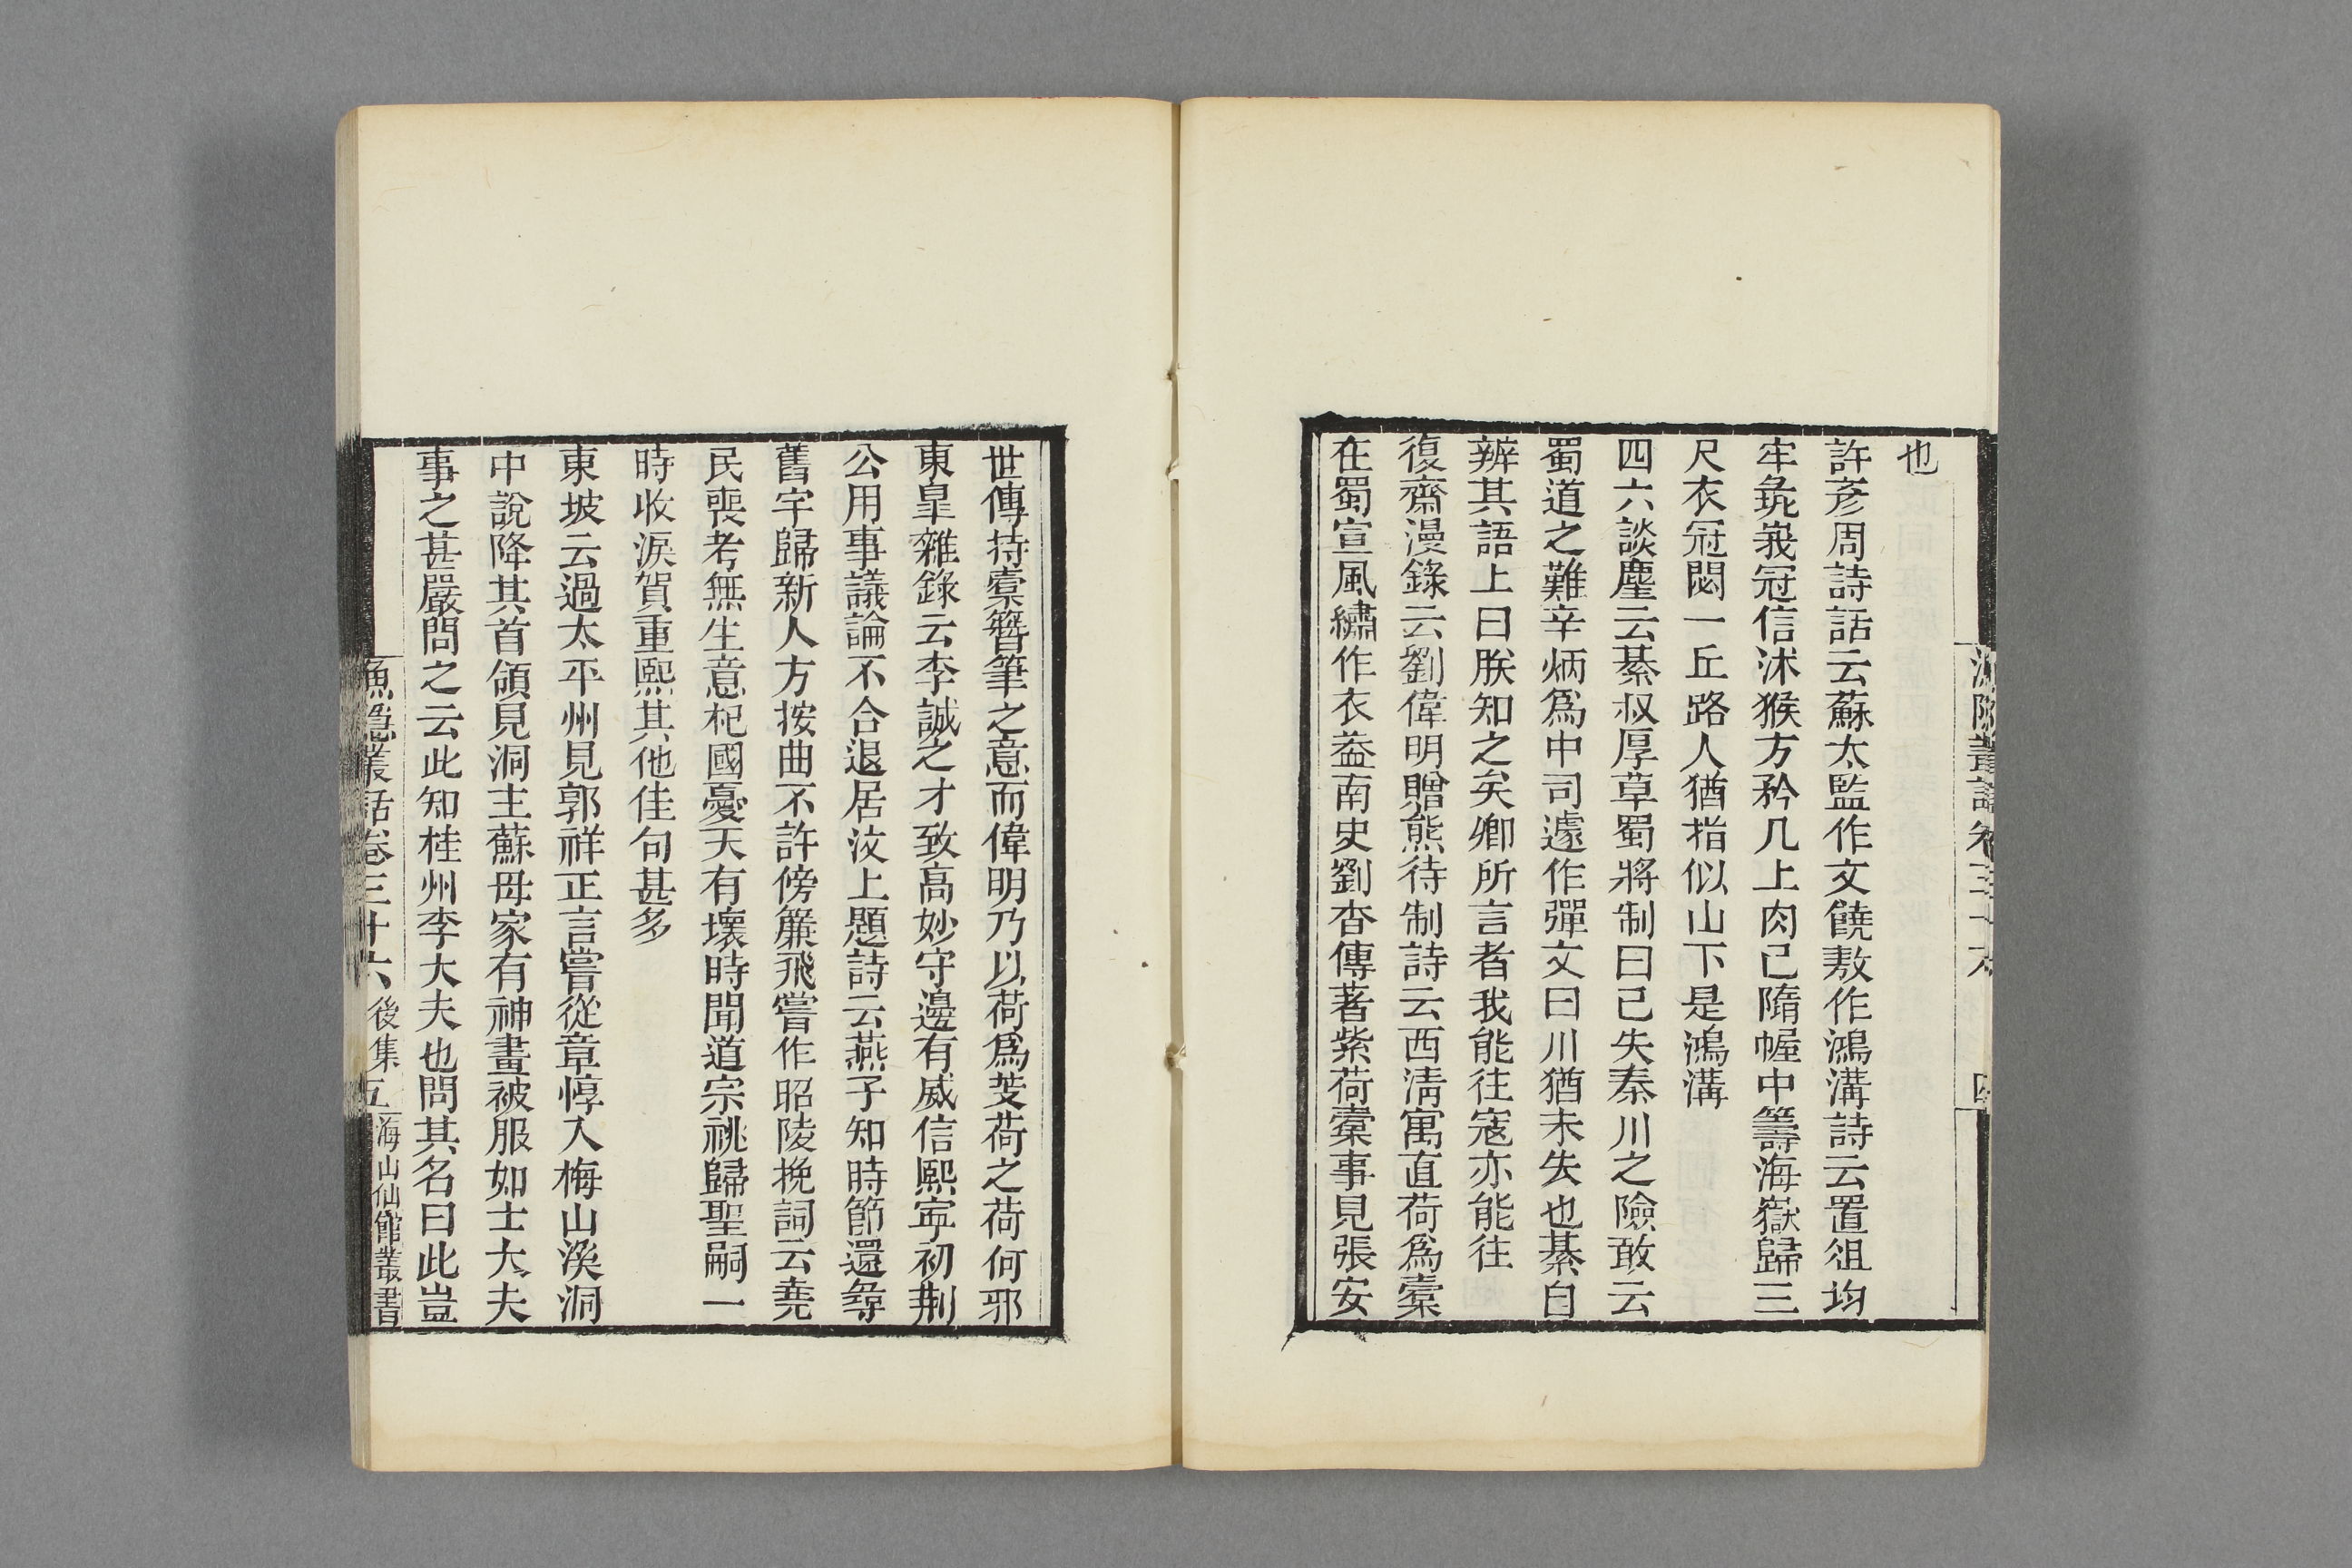 漁隱叢話卷三十六
四
也
許彥周詩話云蘇太監作文饒敖作鴻溝詩云置俎均
牢彘峩冠信沐猴方矜几上肉已隋幄中籌海嶽歸三
尺衣冠閟一丘路人猶指似山下是鴻溝
四六談麈云綦叔厚草蜀將制曰已失秦川之險敢云
蜀道之難辛炳爲中司遽作彈文曰川猶未失也綦自
辨其語上曰朕知之矣卿所言者我能往寇亦能往
復齋漫錄云劉偉明贈熊待制詩云西淸寓直荷爲橐
在蜀宣風繡作衣葢南史劉杳傳著紫荷橐事見張安
世傳持橐簪筆之意而偉明乃以荷爲芰荷之荷何邪
東皐雜錄云李誠之才致高妙守邊有威信熙寧初荆
公用事議論不合退居汶上題詩云燕子知時節還尋
舊宇歸新人方按曲不許傍簾飛嘗作昭陵挽詞云堯
民喪考無生意杞國憂天有壞時聞道宗祧歸聖嗣一
時收淚賀重熙其他佳句甚多
東坡云過太平州見郭祥正言嘗從章惇入梅山溪洞
中說降其首領見洞主蘇毋家有神畫被服如士大夫
事之甚嚴問之云此知桂州李大夫也問其名曰此豈
漁隱叢話卷三十六 後集 五 海山仙館叢書